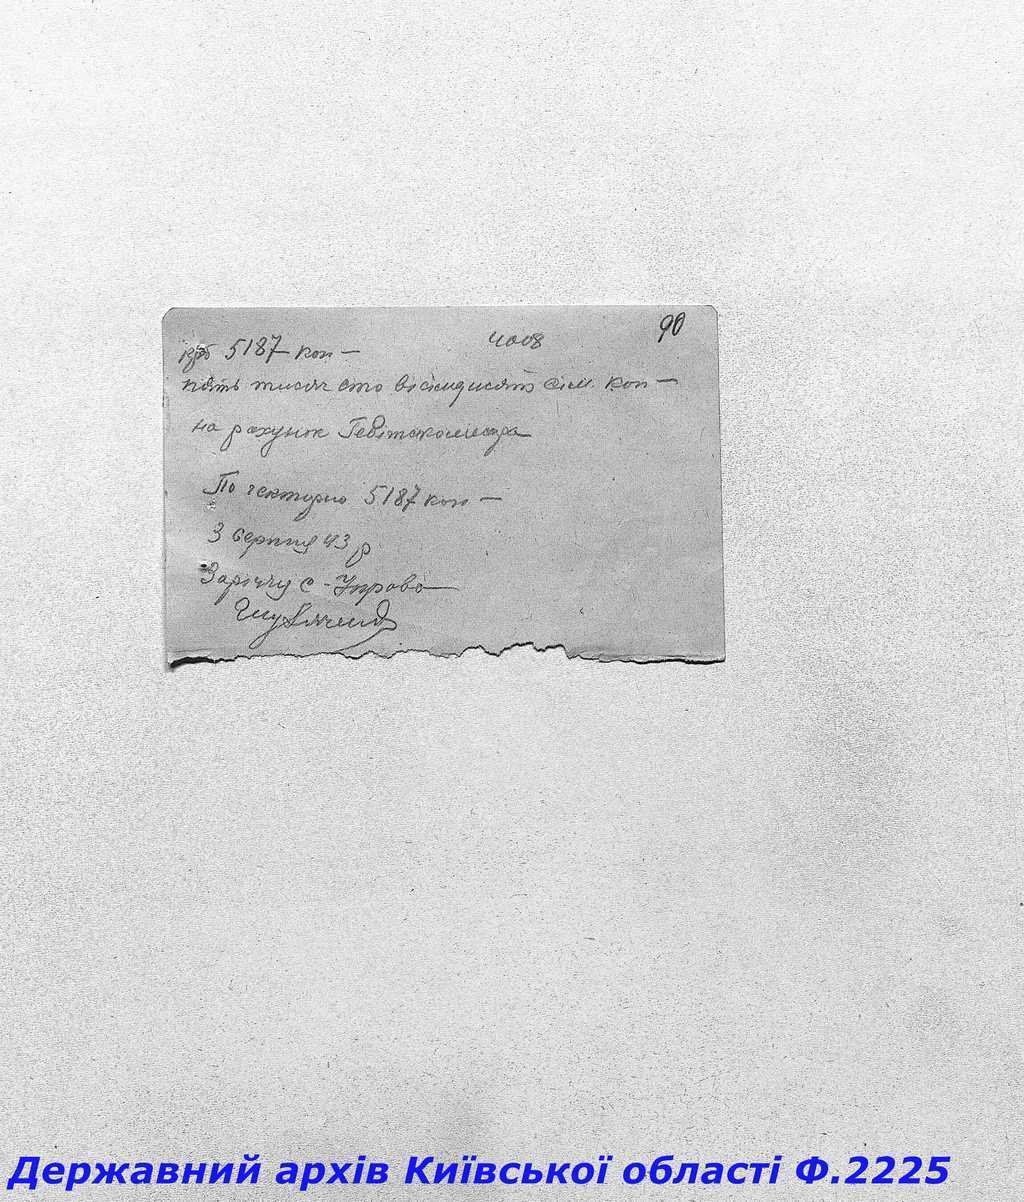 90
4008
крб 5187 коп —
пять тисяч сто вісімдисять сім. коп —
на рахунок Гебітскомісара
По 5187 коп —
3 Серпня 43 р
с - Управа
Державний архів Київської області Ф.2225